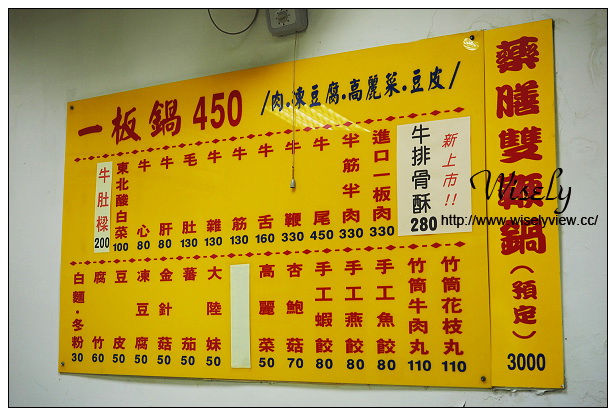 一板鍋 450 /肉.凍豆腐.高麗菜.豆皮/
牛肚樑 200
東北酸白菜 100
牛心 80
牛肝 80
毛肚 130
牛雜 130
牛筋 130
牛舌 160
牛鞭 330
牛尾 450
半筋半肉 330
進口一板肉 330
牛排骨酥 280
新上市!!
白麵·冬粉 30
腐竹 60
豆皮 50
凍豆腐 50
金針菇 50
蕃茄 50
大陸妹 50
高麗菜 50
杏鮑菇 70
手工蝦餃 80
手工燕餃 80
手工魚餃 80
竹筒牛肉丸 110
竹筒花枝丸 110
藥膳雙鞭鍋(預定) 3000
WiseLy
http://www.wiselyview.cc/